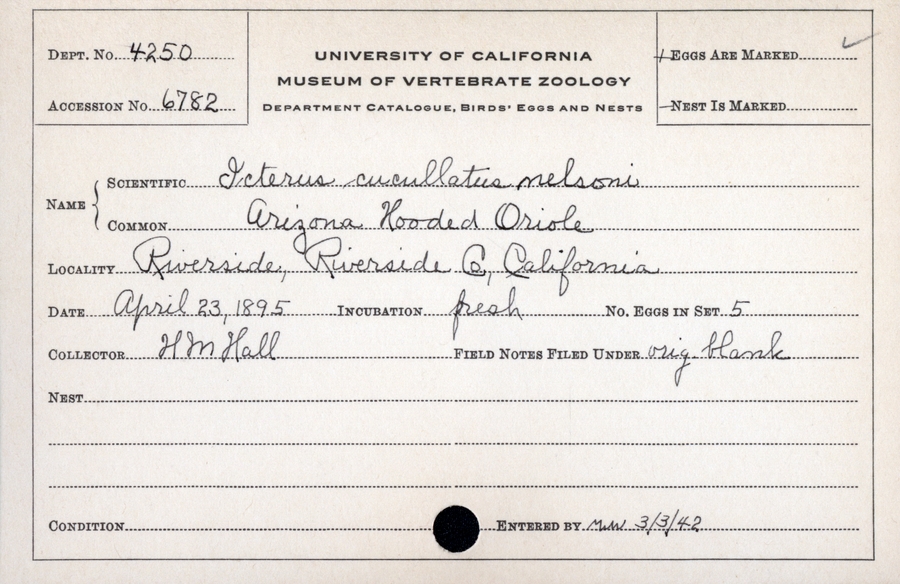 DEPT. No. 4250
ACCESSION No. 6782
UNIVERSITY OF CALIFORNIA
MUSEUM OF VERTEBRATE ZOOLOGY
DEPARTMENT CATALOGUE, BIRDS' EGGS AND NESTS
EGGS ARE MARKED ✓
NEST IS MARKED
NAME
SCIENTIFIC Icterus cucullatus nelsoni
COMMON Arizona Hooded Oriole
LOCALITY Riverside, Riverside Co, California
DATE April 23, 1895 INCUBATION fresh No. EGGS IN SET 5
COLLECTOR H M Hall FIELD NOTES FILED UNDER orig. blank
NEST
CONDITION ENTERED BY 3/3/42